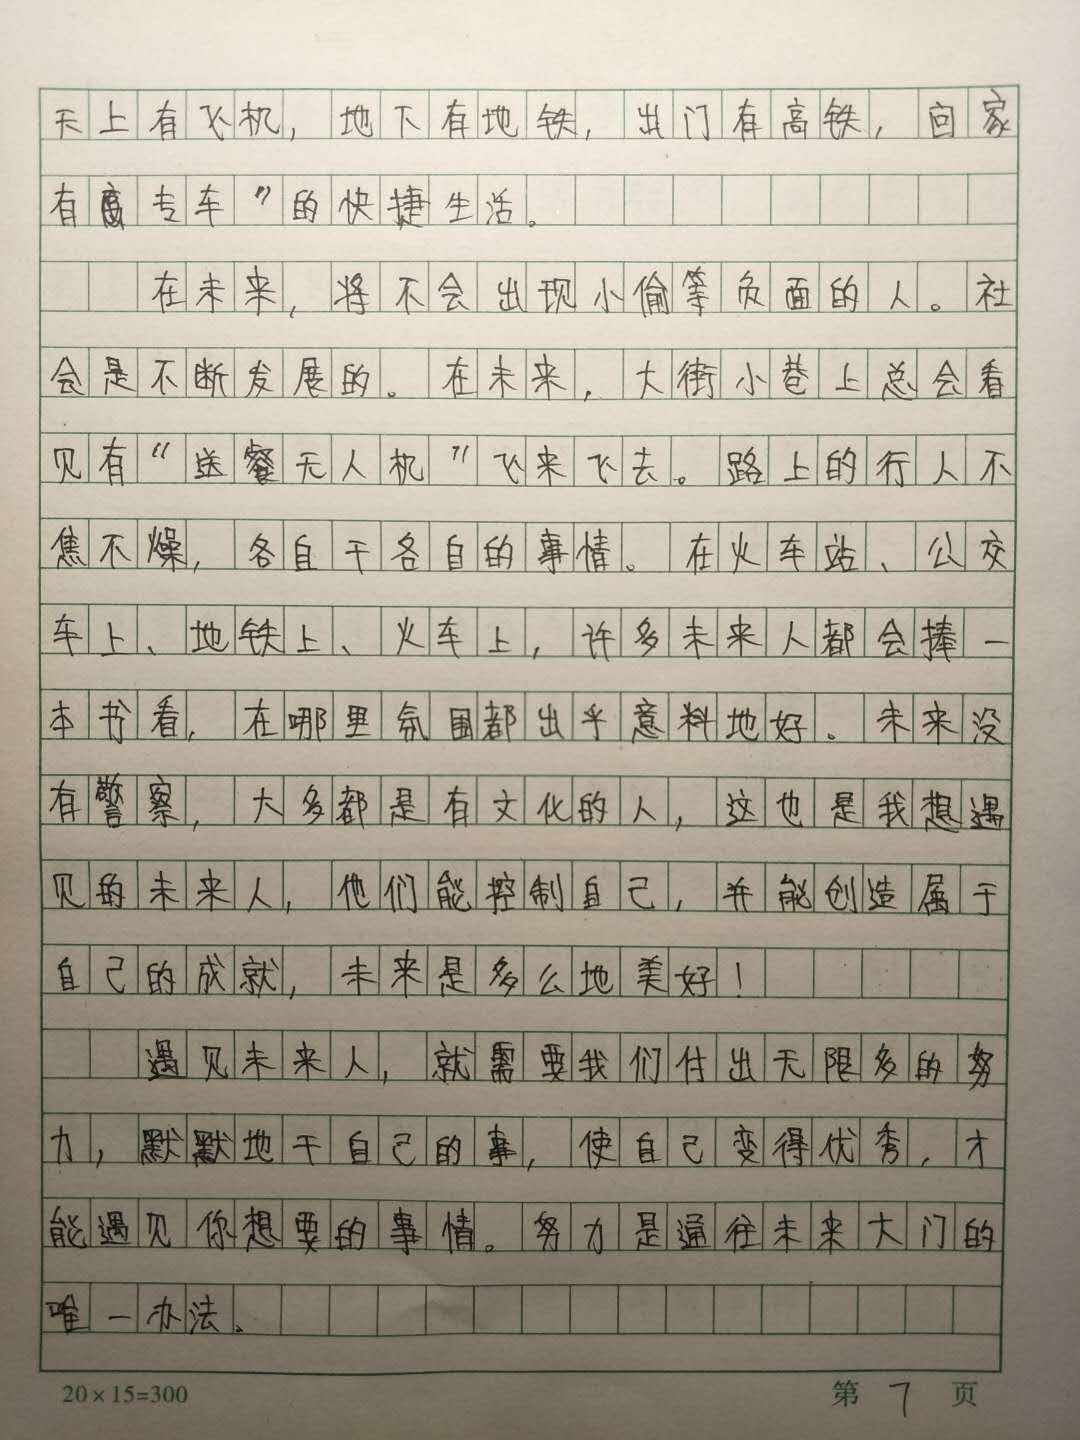 天上有飞机，地下有地铁，出门有高铁，回家
有专车”的快捷生活。
在未来，将不会出现小偷等负面的人。社
会是不断发展的。在未来，大街小巷上总会看
见有“送餐无人机”飞来飞去。路上的行人不
焦不燥，各自干各自的事情。在火车站、公交
车上、地铁上、火车上，许多未来人都会捧一
本书看，在哪里氛围都出乎意料地好。未来没
有警察，大多都是有文化的人，这也是我想遇
见的未来人，他们能控制自己，并能创造属于
自己的成就，未来是多么地美好！
遇见未来人，就需要我们付出无限多的努
力，默默地干自己的事，使自己变得优秀，才
能遇见你想要的事情。努力是通往未来大门的
唯一办法。
20×15=300
第 7 页